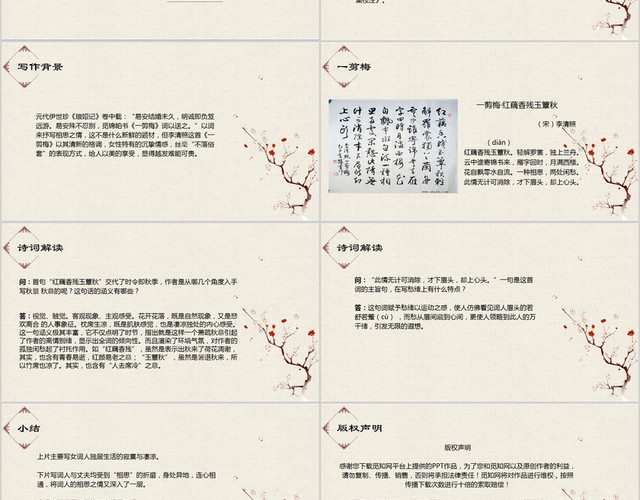 写作背景
元代伊世珍《琅嬛记》卷中载：“易安结婚未久，明诚即负笈
远游。易安殊不忍别，觅锦帕书《一剪梅》词以送之。”以词
来抒写相思之情，这不是什么新鲜的题材，但李清照这首《一
剪梅》以其清新的格调，女性特有的沉挚情感，丝毫“不落俗
套”的表现方式，给人以美的享受，显得越发难能可贵。
一剪梅
一剪梅·红藕香残玉簟秋
（宋）李清照
（diàn）
红藕香残玉簟秋。轻解罗裳，独上兰舟。
云中谁寄锦书来，雁字回时，月满西楼。
花自飘零水自流。一种相思，两处闲愁。
此情无计可消除，才下眉头，却上心头。
诗词解读
问：首句“红藕香残玉簟秋”交代了时令即秋季，作者是从哪几个角度入手
写秋意 秋悲的呢？这句话的涵义有哪些？
答：视觉、触觉。客观现象、主观感受。花开花落，既是自然现象，又是悲
欢离合 的人事象征。枕席生凉，既是肌肤感觉，也是凄凉独处的内心感受。
这一句涵义极其丰富，它不仅点明了时节，指出就是这样一个萧疏秋意引起
了作者的离情别绪，显示出全词的倾向性。而且渲染了环境气氛，对作者的
孤独闲愁起了衬托作用。如“红藕香残”，虽然是表示出秋来了荷花凋谢，
其实，也含有青春易逝，红颜易老之意；“玉簟秋”，虽然是暑退秋来，所
以竹席也凉了。其实，也含有“人去席冷”之意。
诗词解读
问：“此情无计可消除，才下眉头，却上心头。”一句是这首
词的主旨句，在写愁绪上有什么特点？
答：这句词赋予愁绪以运动之感，使人仿佛看见词人眉头的若
舒若蹙（cù），而愁从眉间疏到心间，更使人领略到此人的万
千绪，引发无限的遐想。
小结
上片主要写女词人独居生活的寂寞与凄凉。
下片写词人与丈夫均受到“相思”的折磨，身处异地，连心相
通，将词人的相思之情又深入了一层。
版权声明
版权声明
感谢您下载觅知网平台上提供的PPT作品，为了您和觅知网以及原创作者的利益，
请勿复制、传播、销售，否则将承担法律责任！觅知网将对作品进行维权，按照
传播下载次数进行十倍的索取赔偿！